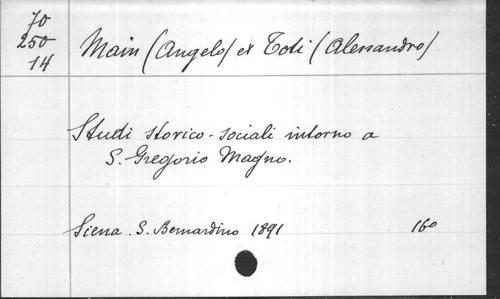 70
250
14
Main (Angelo) et Toti (Alessandro)
Studi storico-sociali intorno a
S. Gregorio Magno.
Siena. S. Bernardino 1891 16º